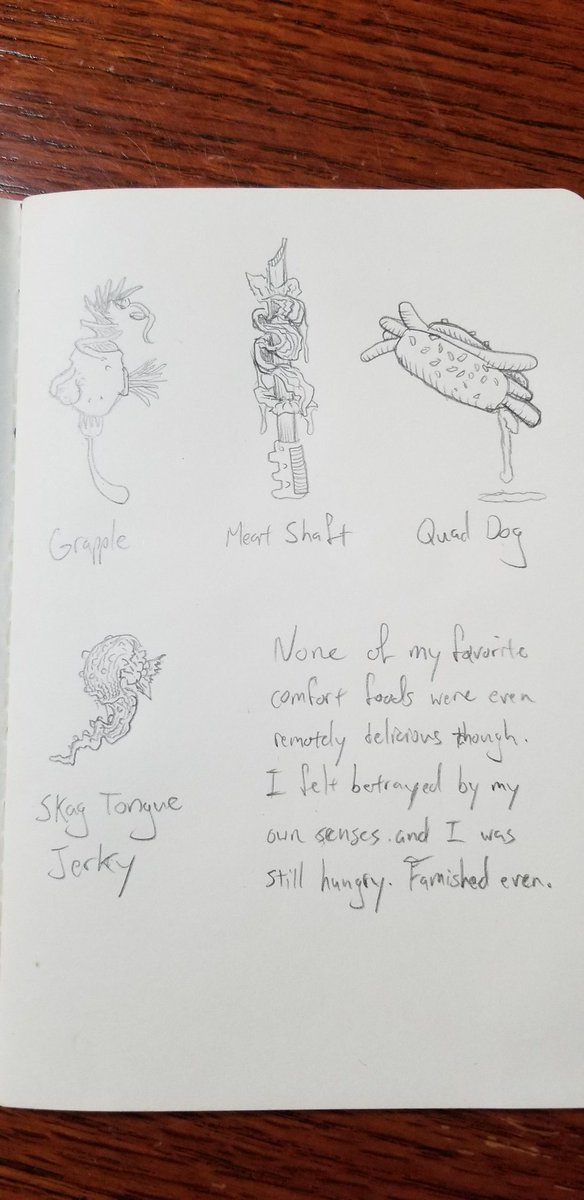 Grapple
Meat Shaft
Quad Dog
Skag Tongue
Jerky
None of my favorite
comfort foods were even
remotely delicious though.
I felt betrayed by my
own senses and I was
still hungry. Famished even.